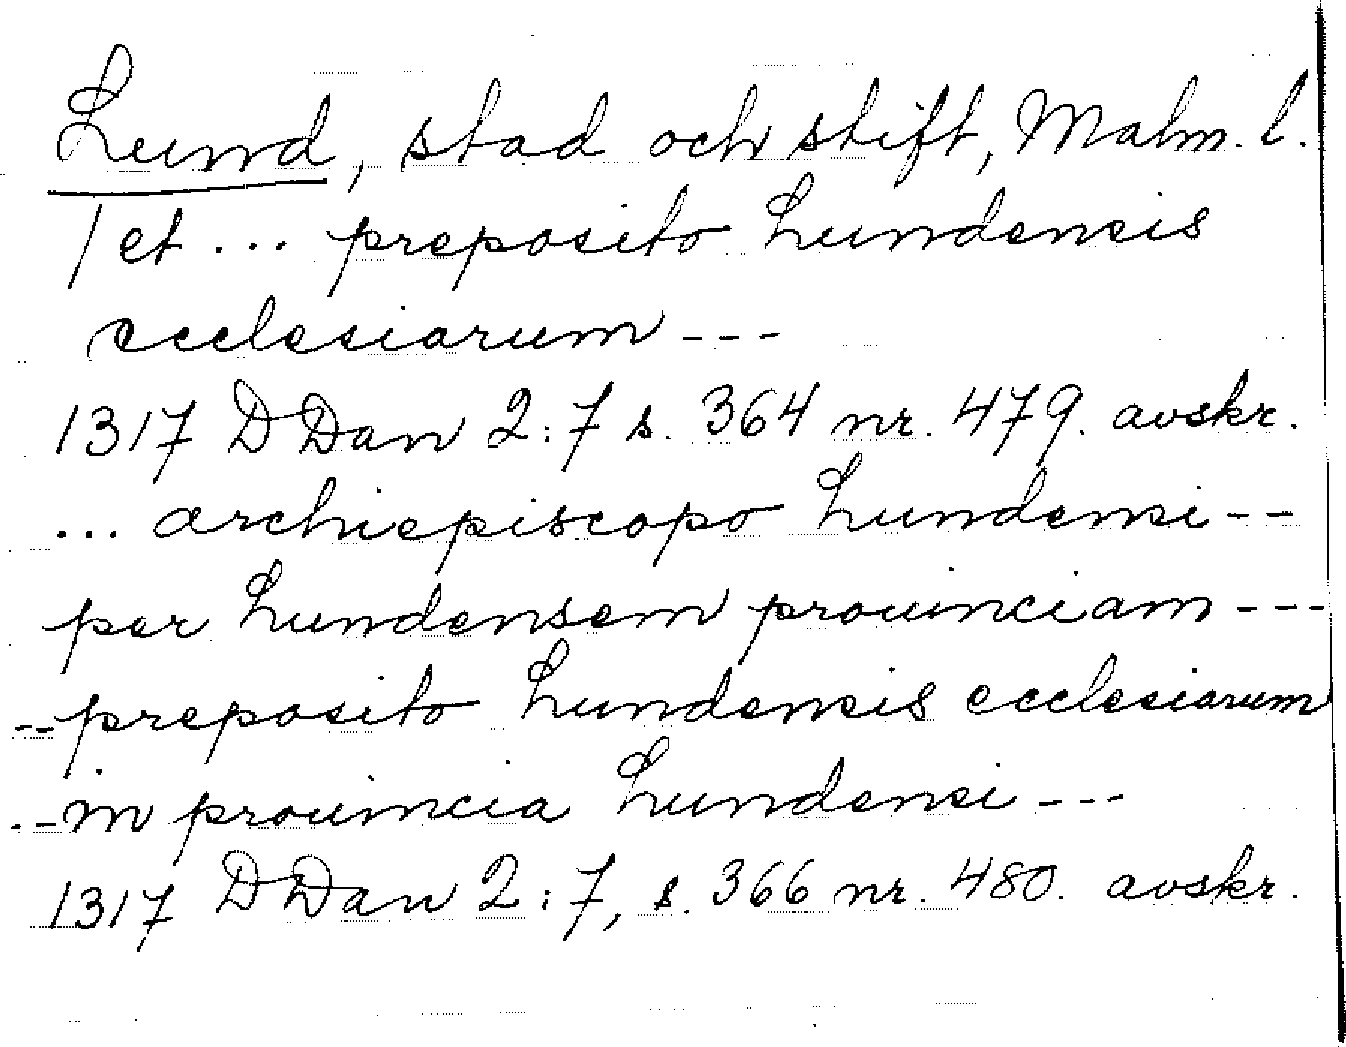 Lund, stad och stift, Malm. l.
/ et ... preposito Lundensis
ecclesiarum ---
1317 DDan 2:7 s. 364 nr. 479. avskr.
... archiepiscopo Lundensi --
per Lundensem prouinciam ---
-- preposito Lundensis ecclesiarum
-- in prouincia Lundensi ---
1317 DDan 2:7, s. 366 nr. 480. avskr.